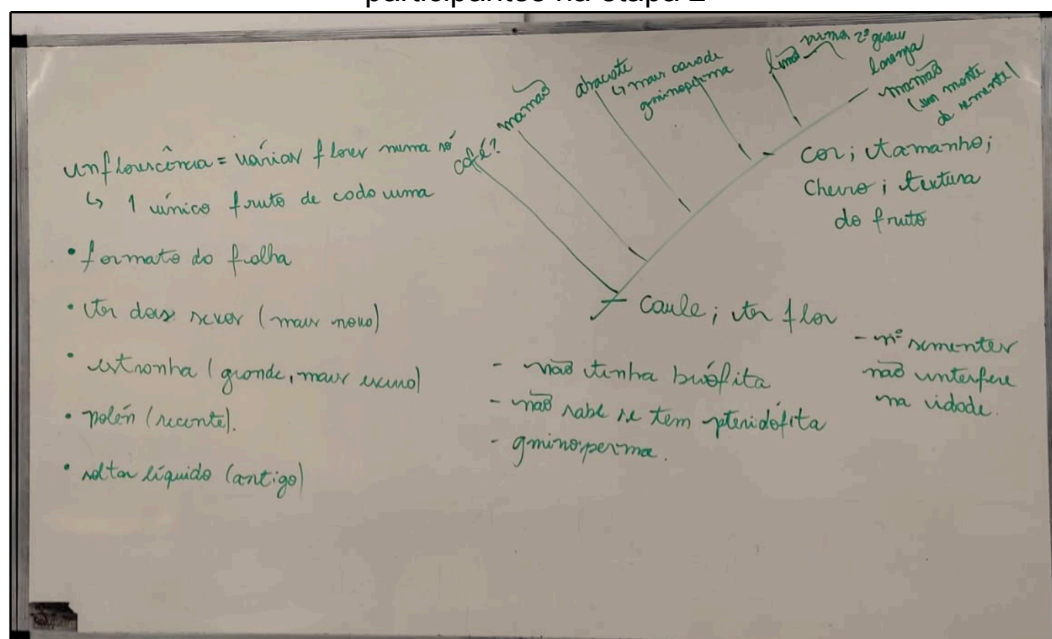 participantes na etapa 2
inflorescência = várias flores numa só
↳ 1 único fruto de cada uma
• formato da folha
• ter dois sexos (mais novo)
• estranha (grande, mais escuro)
• polén (recente).
• soltar líquido (antigo)
café?
mamão
abacate
↳ mais cara de
gminosperma
limão
numa 2º grau
laranja
mamão
(um monte
de semente)
cor; tamanho;
cheiro; textura
do fruto
caule; ter flor
- não tinha briófita
- não sabe se tem pteridófita
- gminosperma.
- nº sementes
não interfere
na idade.